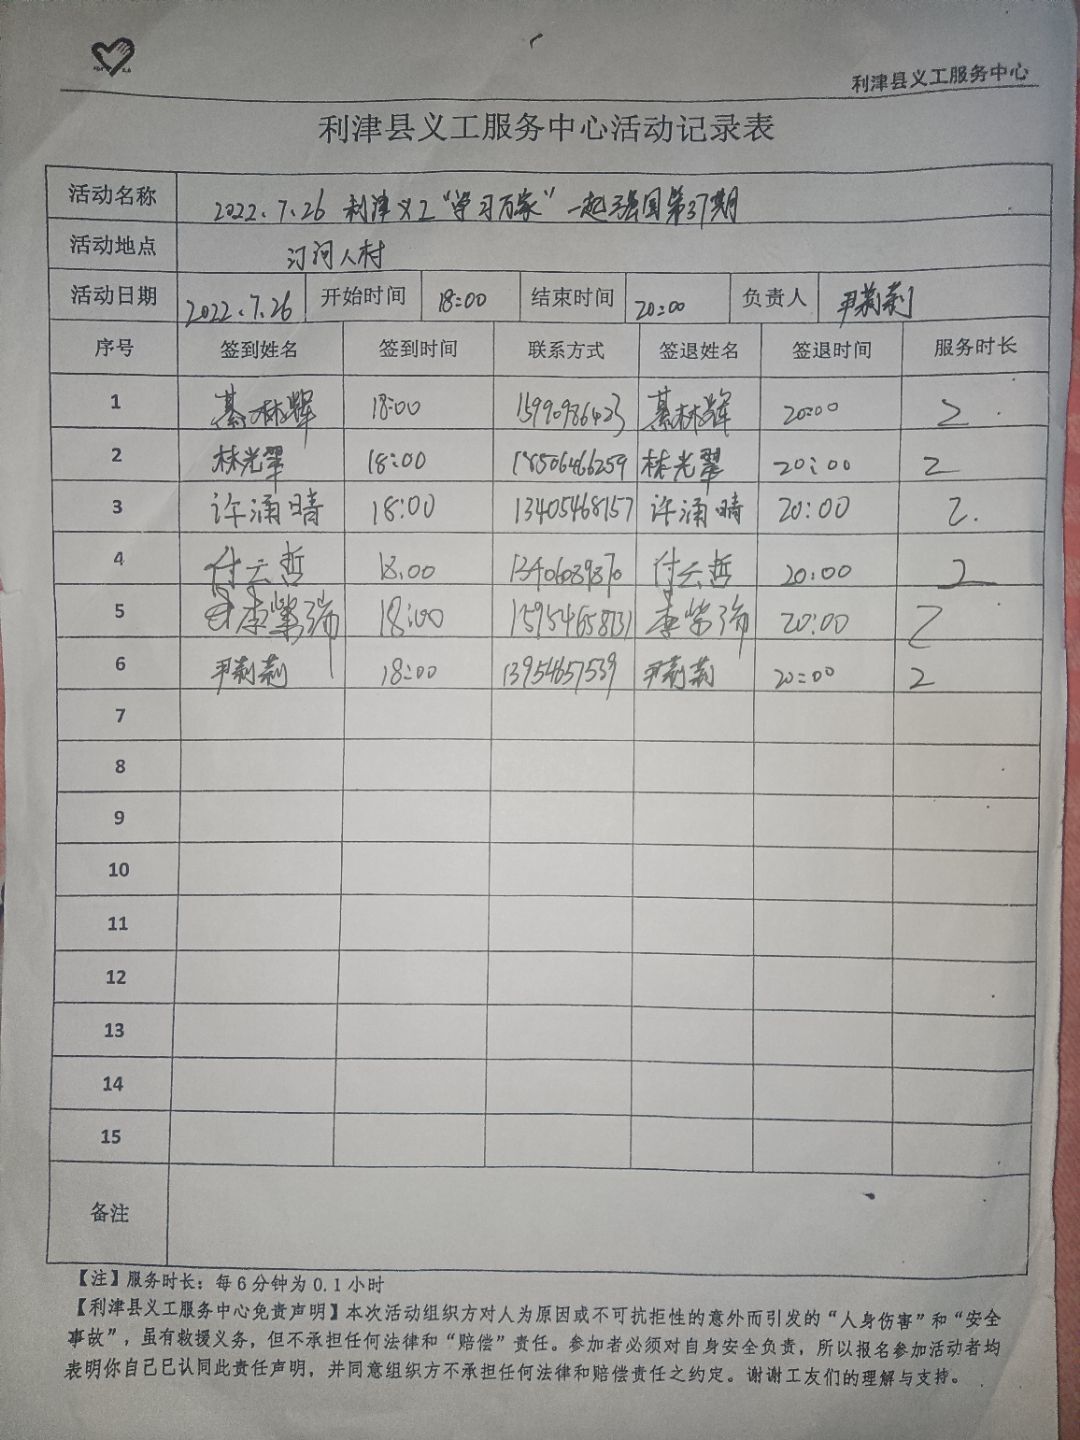 利津县义工服务中心
利津县义工服务中心活动记录表
活动名称 2022.7.26 利津义工“学习万家”一起强国第37期
活动地点 汀河人村
活动日期 2022.7.26 开始时间 18:00 结束时间 20:00 负责人 尹莉莉
序号 签到姓名 签到时间 联系方式 签退姓名 签退时间 服务时长
1 綦林辉 18:00 綦林辉 20:00 2
2 林光翠 18:00 18506466259 林光翠 20:00 2
3 许涌晴 18:00 13405468157 许涌晴 20:00 2.
4 付云哲 18:00 付云哲 20:00 2
5 李紫瑞 18:00 李紫瑞 20:00 2
6 尹莉莉 18:00 13954657539 尹莉莉 20:00 2
7
8
9
10
11
12
13
14
15
备注
【注】服务时长：每6分钟为0.1小时
【利津县义工服务中心免责声明】本次活动组织方对人为原因或不可抗拒性的意外而引发的“人身伤害”和“安全
事故”，虽有救援义务，但不承担任何法律和“赔偿”责任。参加者必须对自身安全负责，所以报名参加活动者均
表明你自己已认同此责任声明，并同意组织方不承担任何法律和赔偿责任之约定。谢谢工友们的理解与支持。